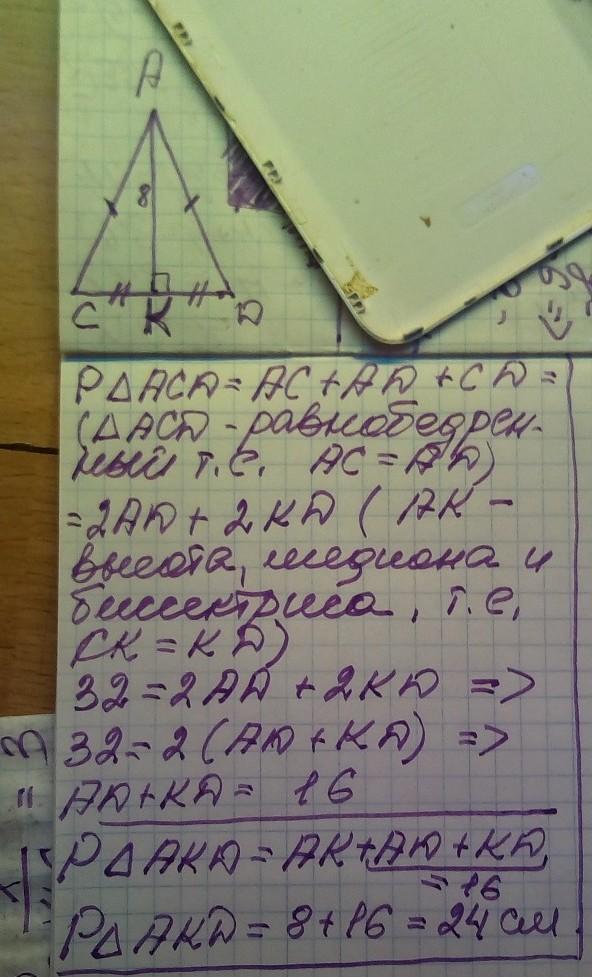 A
8
C K D
P△ACD = AC + AD + CD =
(△ACD - равнобедрен-
ный т.е. AC = AD)
= 2AD + 2KD ( AK -
высота, медиана и
биссектриса, т.е.
CK = KD)
32 = 2AD + 2KD =>
32 = 2 (AD + KD) =>
AD + KD = 16
P△AKD = AK + AD + KD
= 16
P△AKD = 8 + 16 = 24 см
= 3